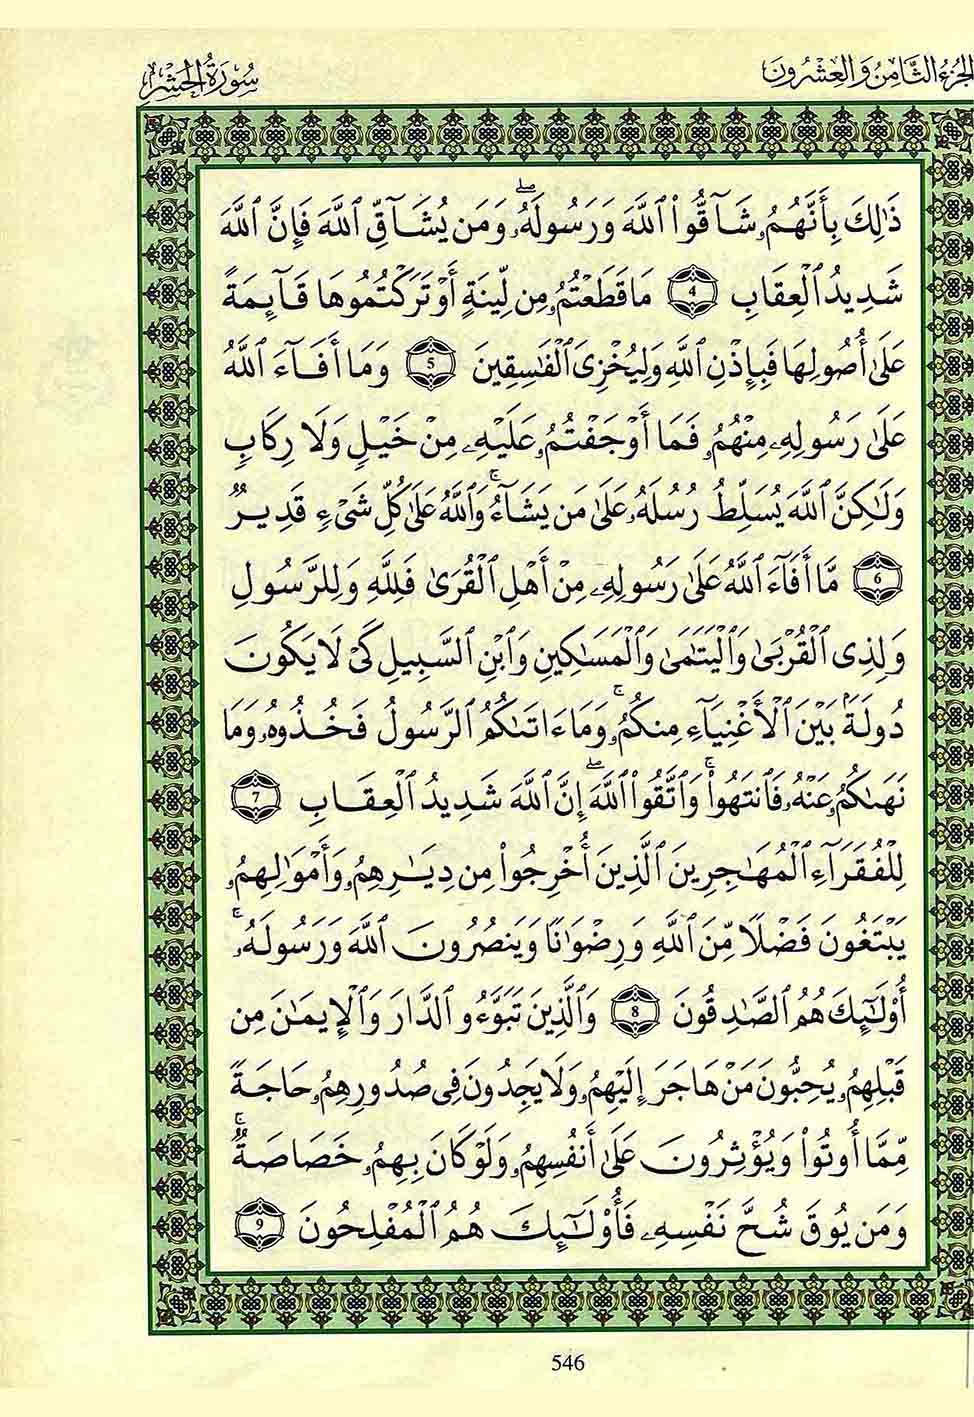 الجزء الثامن والعشرون
سورة الحشر
ذَٰلِكَ بِأَنَّهُمُۥ شَآقُّوا۟ ٱللَّهَ وَرَسُولَهُۥۖ وَمَن يُشَآقِّ ٱللَّهَ فَإِنَّ ٱللَّهَ
شَدِيدُ ٱلْعِقَابِ 4 مَا قَطَعْتُمُۥ مِن لِّينَةٍ أَوْ تَرَكْتُمُوهَا قَآئِمَةً
عَلَىٰٓ أُصُولِهَا فَبِإِذْنِ ٱللَّهِ وَلِيُخْزِىَ ٱلْفَٰسِقِينَ 5 وَمَآ أَفَآءَ ٱللَّهُ
عَلَىٰ رَسُولِهِۦ مِنْهُمُۥ فَمَآ أَوْجَفْتُمُۥ عَلَيْهِۦ مِنْ خَيْلٍ وَلَا رِكَابٍ
وَلَٰكِنَّ ٱللَّهَ يُسَلِّطُ رُسُلَهُۥ عَلَىٰ مَن يَشَآءُۚ وَٱللَّهُ عَلَىٰ كُلِّ شَىْءٍ قَدِيرٌ
6 مَّآ أَفَآءَ ٱللَّهُ عَلَىٰ رَسُولِهِۦ مِنْ أَهْلِ ٱلْقُرَىٰ فَلِلَّهِ وَلِلرَّسُولِ
وَلِذِى ٱلْقُرْبَىٰ وَٱلْيَتَٰمَىٰ وَٱلْمَسَٰكِينِ وَٱبْنِ ٱلسَّبِيلِ كَىْ لَا يَكُونَ
دُولَةَۢ بَيْنَ ٱلْأَغْنِيَآءِ مِنكُمُۥۚ وَمَآ ءَاتَىٰكُمُ ٱلرَّسُولُ فَخُذُوهُۥ وَمَا
نَهَىٰكُمُۥ عَنْهُۥ فَٱنتَهُوا۟ۚ وَٱتَّقُوا۟ ٱللَّهَۖ إِنَّ ٱللَّهَ شَدِيدُ ٱلْعِقَابِ 7
لِلْفُقَرَآءِ ٱلْمُهَٰجِرِينَ ٱلَّذِينَ أُخْرِجُوا۟ مِن دِيَٰرِهِمُۥ وَأَمْوَٰلِهِمُۥ
يَبْتَغُونَ فَضْلًا مِّنَ ٱللَّهِ وَرِضْوَٰنًا وَيَنصُرُونَ ٱللَّهَ وَرَسُولَهُۥۚ
أُو۟لَٰٓئِكَ هُمُ ٱلصَّٰدِقُونَ 8 وَٱلَّذِينَ تَبَوَّءُو ٱلدَّارَ وَٱلْإِيمَٰنَ مِن
قَبْلِهِمُۥ يُحِبُّونَ مَنْ هَاجَرَ إِلَيْهِمُۥ وَلَا يَجِدُونَ فِى صُدُورِهِمُۥ حَاجَةً
مِّمَّآ أُوتُوا۟ وَيُؤْثِرُونَ عَلَىٰٓ أَنفُسِهِمُۥ وَلَوْ كَانَ بِهِمُۥ خَصَاصَةٌۚ
وَمَن يُوقَ شُحَّ نَفْسِهِۦ فَأُو۟لَٰٓئِكَ هُمُ ٱلْمُفْلِحُونَ 9
546